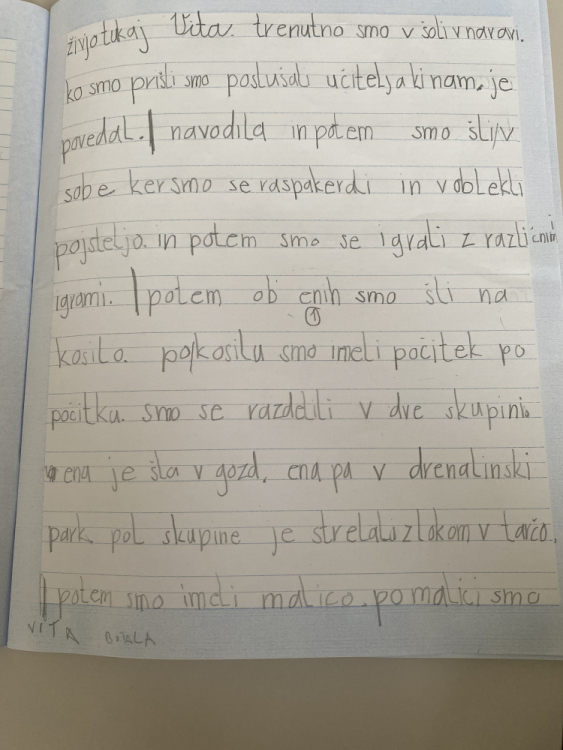 živjo tukaj Vita. trenutno smo v šoli v naravi.
ko smo prišli smo poslušali učitelja ki nam. je
povedal. navodila in potem smo šli v
sobe ker smo se raspakerali in v oblekli
pojsteljo. in potem smo se igrali z različnimi
igrami. potem ob enih smo šli na
①
kosilo. po kosilu smo imeli počitek po
počitku. smo se razdelili v dve skupini.
ena je šla v gozd, ena pa v drenalinski
park. pol skupine je strelalo z lokom v tarčo.
potem smo imeli malico. po malici smo
VITA